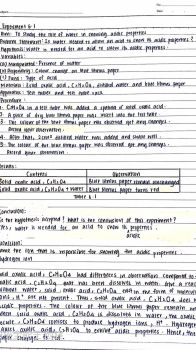 Experiment 6.1
Aim: To study the role of water in showing acidic properties
Problem Statement: Is water needed to allow an acid to show its acidic properties?
Hypothesis: Water is needed for an acid to show its acidic properties.
Variables:
(a) Manipulated: Presence of water
(b) Responding: Colour change on blue litmus paper
(c) Fixed: Type of acid
Materials: Solid oxalic acid, C2H2O4, distilled water and blue litmus paper
Apparatus: Test tubes and test tube rack
Procedure:
1. C2H2O4 in a test tube was added a spatula of solid oxalic acid.
2. A piece of dry blue litmus paper was put into the test tube.
3. The colour of the blue litmus paper was observed for any changes
Record your observation.
4. After that, 2cm³ distilled water was added and shaken well.
5. The colour of the blue litmus paper was observed for any changes.
Record your observation.
Results:
Contents Observation
Solid oxalic acid, C2H2O4 Blue litmus paper remains unchanged
Solid oxalic acid, C2H2O4 + water Blue litmus paper turns red
Table 6.1
Conclusion:
Is the hypothesis accepted? What is the conclusion of this experiment?
Yes, water is needed for an acid to show its properties
acidic
Discussion:
Name the ion that is responsible for showing the acidic properties.
Hydrogen ion
Solid oxalic acid, C2H2O4 had differences in observations compared to
oxalic acid, C2H2O4 that has been dissolved in water
without water, solid oxalic acid, C2H2O4 exist in the form of
and H+ are not present. Thus, solid oxalic acid, C2H2O4 does not
acidic properties. The colour of the blue litmus paper remains
When solid oxalic acid C2H2O4 is dissolved in water, the oxalic
molecule, C2H2O4 ionises to produce hydrogen ions, H+. Hydrogen
causes oxalic acid, C2H2O4 to show acidic properties. Hence, the
paper changes to red.